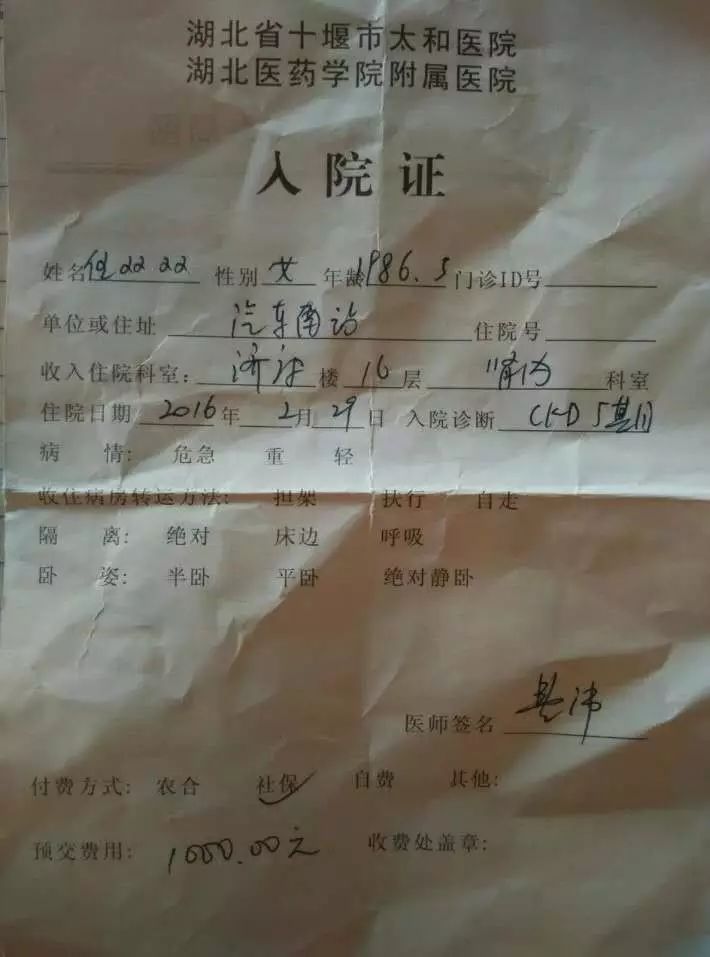 湖北省十堰市太和医院
湖北医药学院附属医院
入院证
姓名 任双双 性别 女 年龄 1986.5 门诊ID号
单位或住址 汽车南站 住院号
收入住院科室: 济 楼 16 层 肾内 科室
住院日期 2016 年 2 月 29 日 入院诊断 CKD 5期
病 情: 危急 重 轻
收住病房转运方法: 担架 扶行 自走
隔 离: 绝对 床边 呼吸
卧 姿: 半卧 平卧 绝对静卧
医师签名
付费方式: 农合 社保 自费 其他:
预交费用: 1000.00元 收费处盖章: